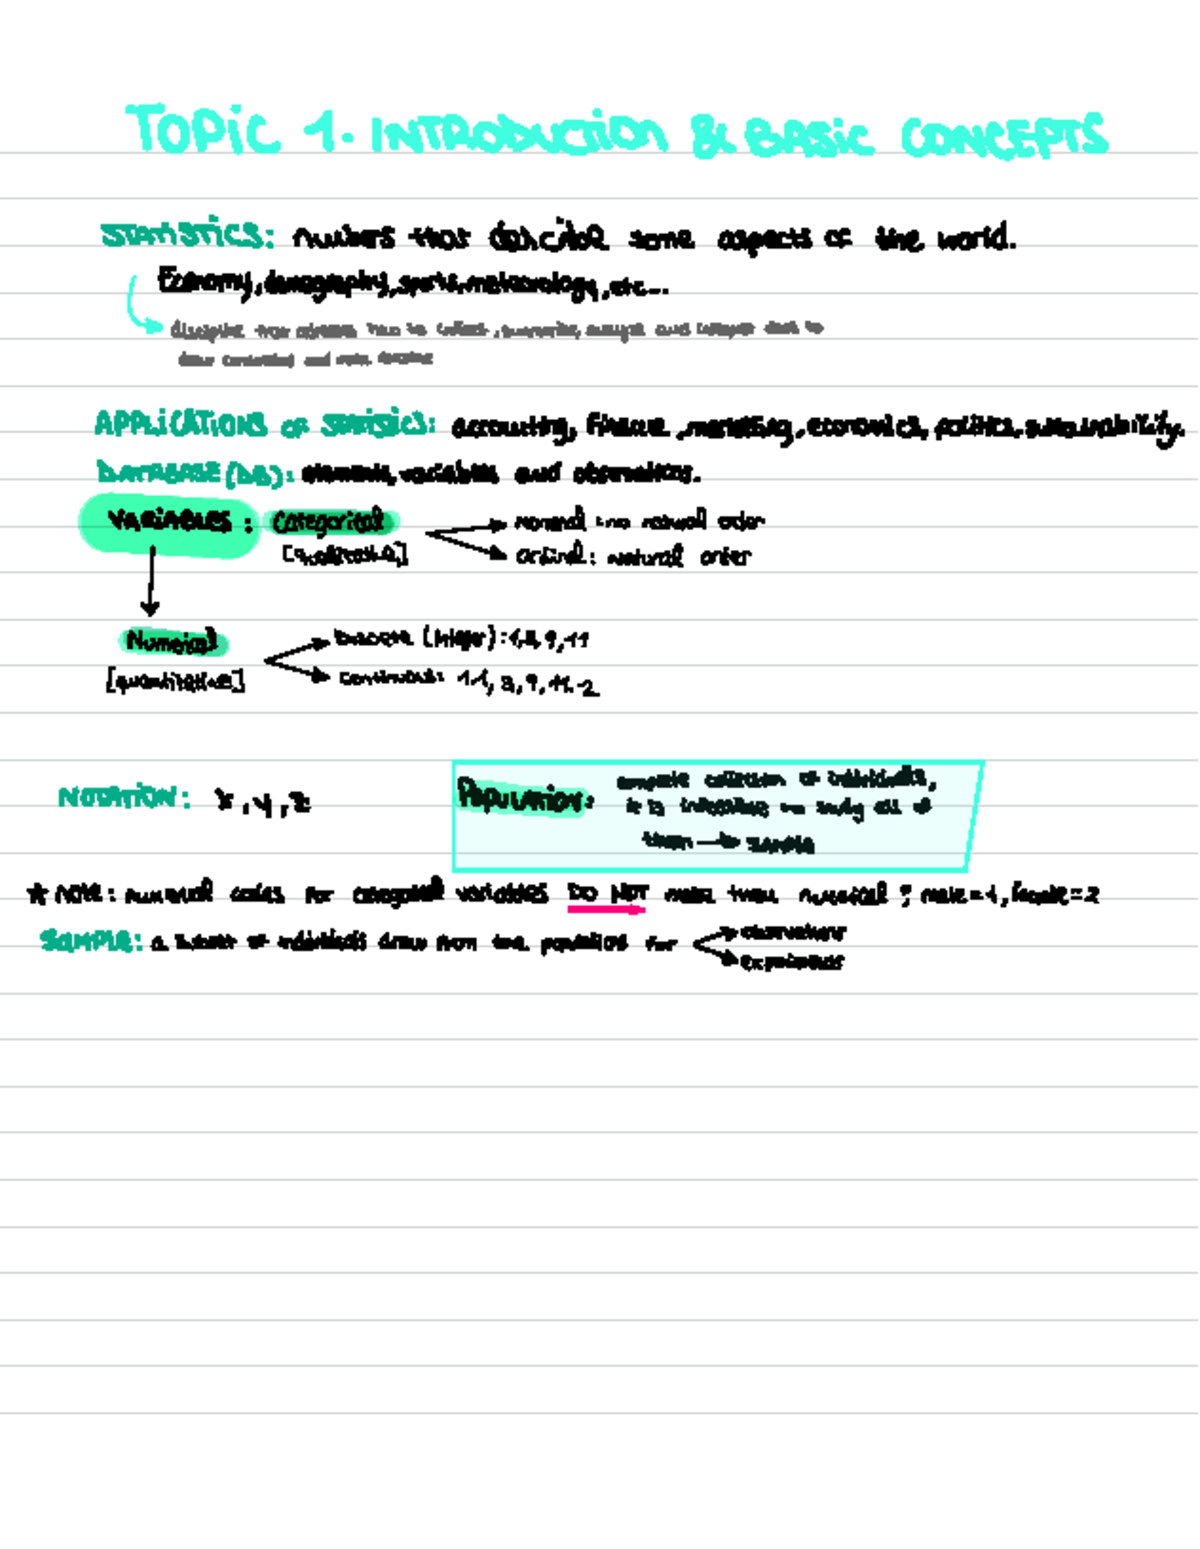 TOPIC 1. INTRODUCTION & BASIC CONCEPTS
STATISTICS: numbers that describe some aspects of the world.
Economy, demography, sports, meteorology, etc...
discipline that us to collect, summarize, analyze and interpret data to
draw conclusions and make decisions
APPLICATIONS OF STATISTICS: accounting, finance, marketing, economics, politics, sustainability.
DATABASE (DB): elements, variables and observations.
VARIABLES: Categorical
nominal: no natural order
[qualitative]
ordinal: natural order
Numerical
Discrete (integer): 1, 8, 9, 11
[quantitative]
continuous: 1.1, 3, 9, 11.2
NOTATION: x, y, z
POPULATION: complete collection of individuals,
it is infeasible to study all of
them → sample
* NOTE: numerical codes for categorical variables DO NOT make them numerical; male=1, female=2
SAMPLE: a subset of individuals drawn from the population for
observations
experiments